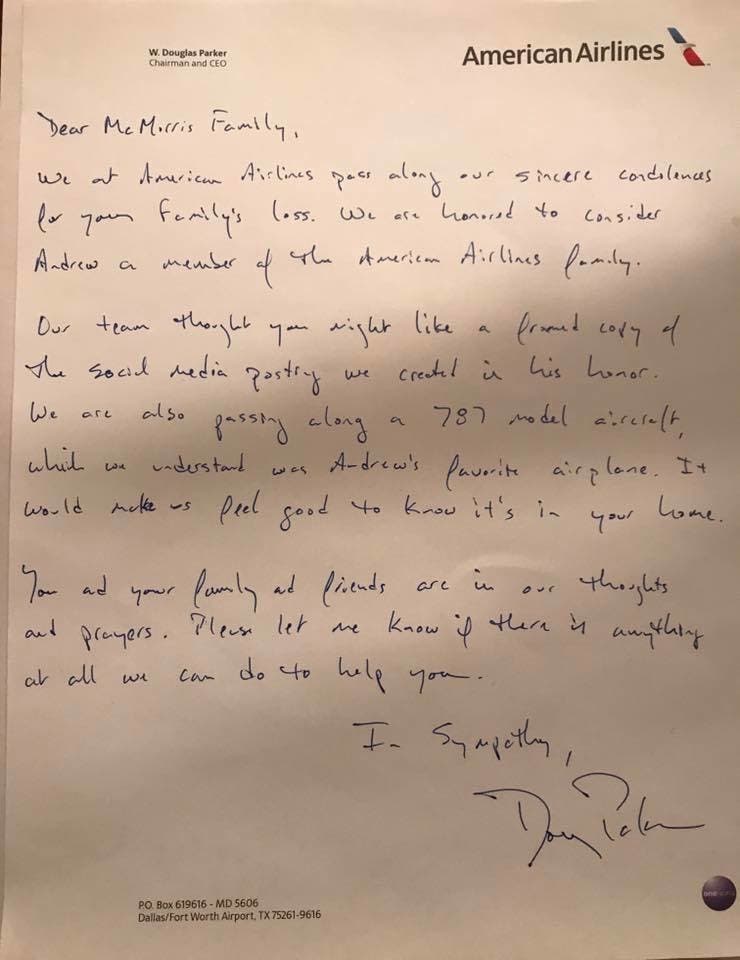 W. Douglas Parker
Chairman and CEO
American Airlines
Dear McMorris Family,
We at American Airlines pass along our sincere condolences
for your family's loss. We are honored to consider
Andrew a member of the American Airlines family.
Our team thought you might like a framed copy of
the social media posting we created in his honor.
We are also passing along a 787 model aircraft,
which we understand was Andrew's favorite airplane. It
would make us feel good to know it's in your home.
You and your family and friends are in our thoughts
and prayers. Please let me know if there is anything
at all we can do to help you.
In Sympathy,
Doug Parker
P.O. Box 619616 - MD 5606
Dallas/Fort Worth Airport, TX 75261-9616
oneworld